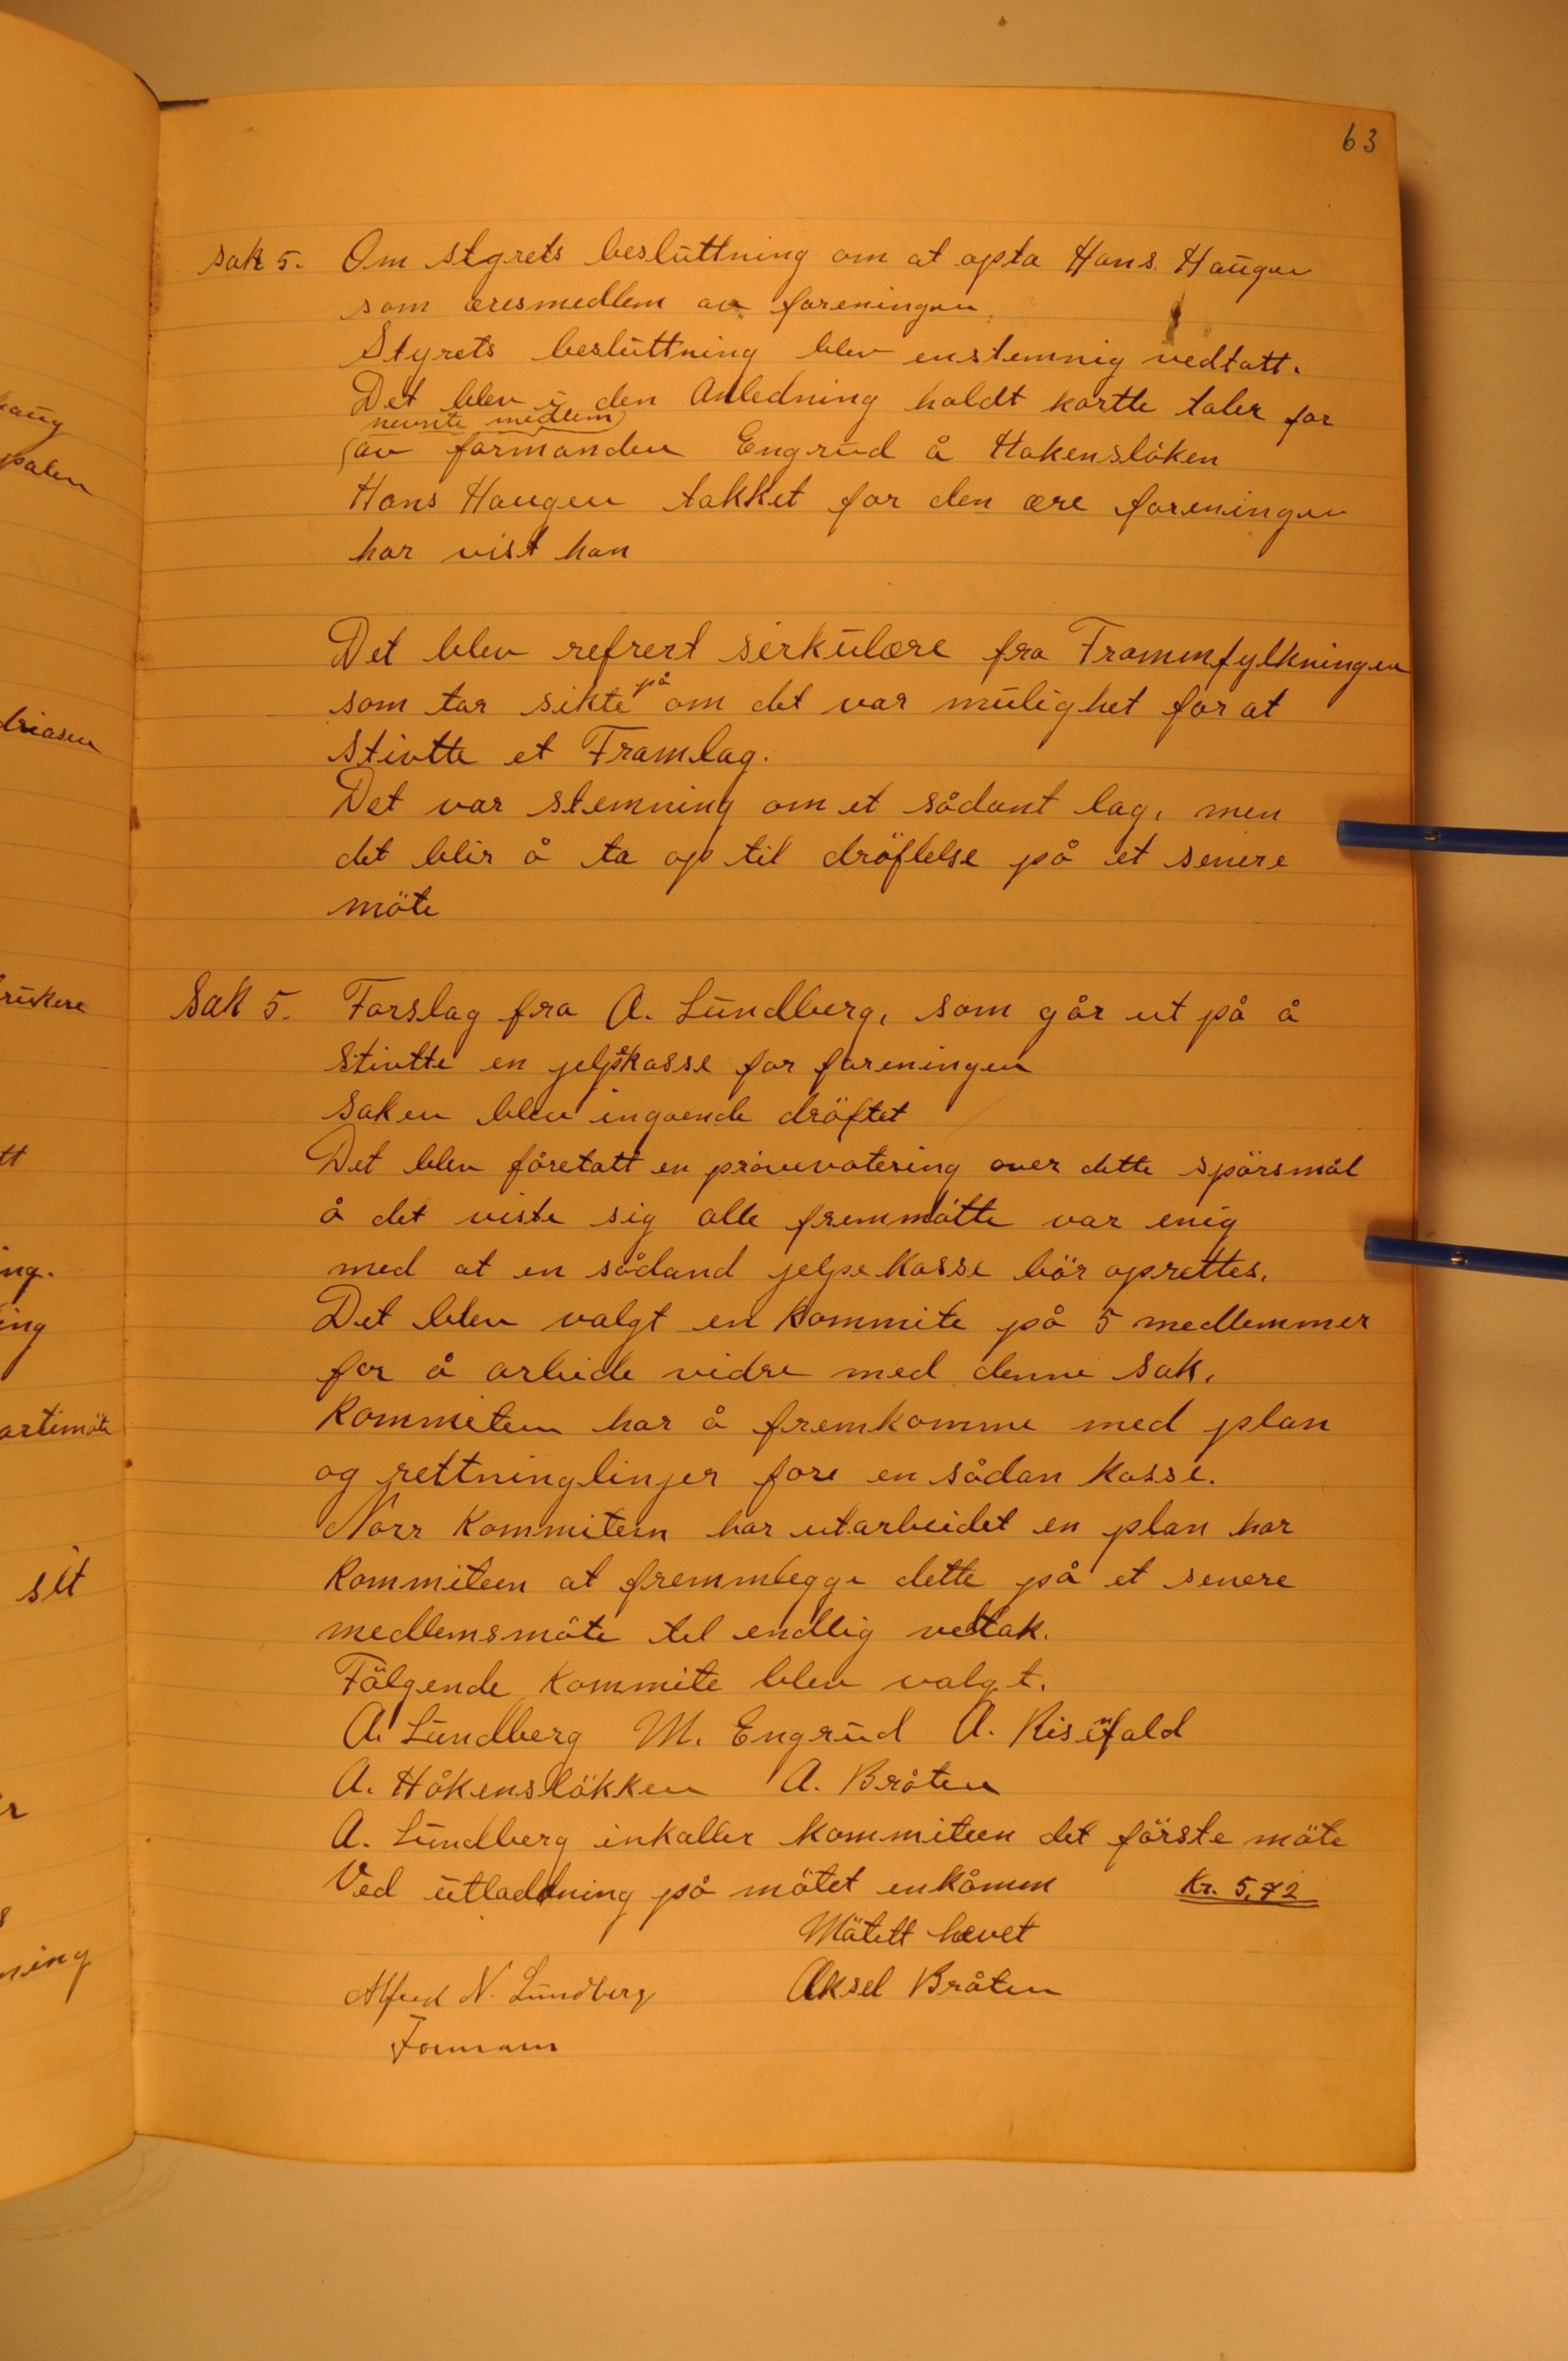 63
sak 5. Om styrets besluttning om at opta Hans Haugen
som æresmedlem av foreningen.
Styrets besluttning blev enstemnig vedtatt.
Det blev i den Anledning holdt kortte taler for
nevnte medlem
(av formanden Engrud å Hakenslöken
Hans Haugen takket for den ære foreningen
har vist han
Det blev refrert serkulære fra Frammfylkningen
som tar sikte på om det var mulighet for at
stivtte et Framlag.
Det var stemning om et sådant lag, men
det blir å ta op til dröftelse på et senere
möte
Sak 5. Forslag fra A. Lundberg, som går ut på å
stivtte en jelpekasse for foreningen
saken blev ingående dröftet
Det blev företatt en prövevotering over dette spörsmål
å det viste sig alle fremmötte var enig
med at en sådand jelpekasse bör oprettes.
Det blev valgt en kommite på 5 medlemmer
for å arbeide vidre med denne sak.
Kommiteen har å fremkomme med plan
og rettninglinjer fore en sådan kasse.
Nårr kommiteen har utarbeidet en plan har
kommiteen at fremmlegge dette på et senere
medlemsmöte tel endlig vedtak.
Fölgende kommite blev valgt.
A. Lundberg M. Engrud A. Risenfald
A. Håkenslökken A. Bråten
A. Lundberg inkaller kommiteen det förste möte
Ved utladdning på mötet enkåmm Kr. 5,72
Mötett hevet
Alfred N. Lundberg Aksel Bråten
Formann
haug
palen
driasen
ruskere
tt
ing.
ing
artimöte
sit
r
s
ning